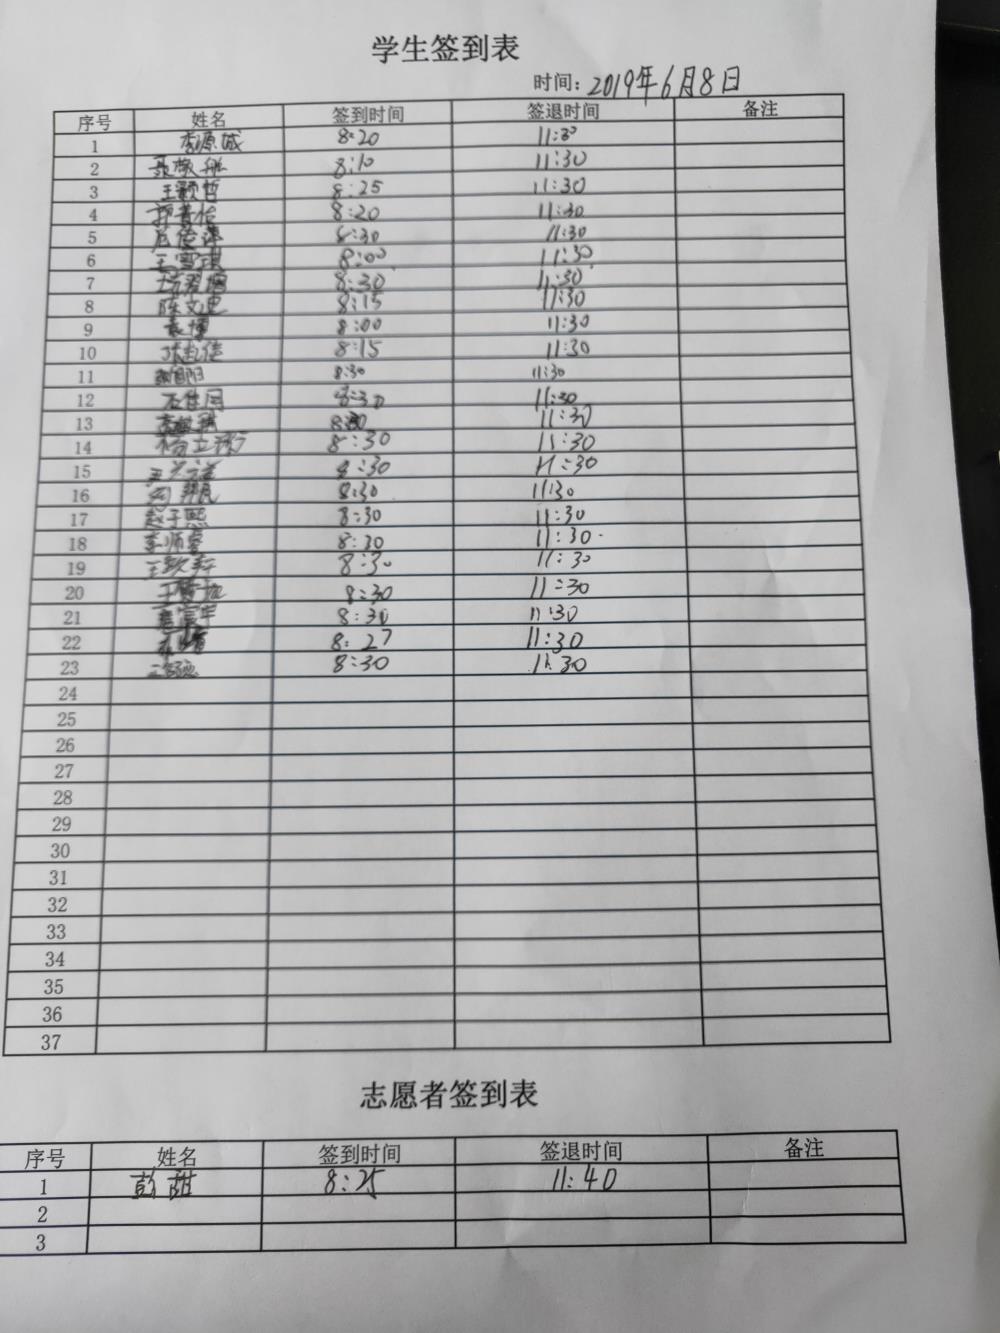 学生签到表
时间: 2019年6月8日
序号 姓名 签到时间 签退时间 备注
1 李源城 8:20 11:30
2 8:10 11:30
3 王颖哲 8:25 11:30
4 8:20 11:30
5 8:30 11:30
6 王雪琪 8:00 11:30
7 8:30 11:30
8 陈文迪 8:15 11:30
9 袁博 8:00 11:30
10 8:15 11:30
11 8:30 11:30
12 8:30 11:30
13 8:30 11:30
14 杨立 8:30 11:30
15 8:30 11:30
16 8:30 11:30
17 赵子熙 8:30 11:30
18 李师睿 8:30 11:30
19 8:30 11:30
20 8:30 11:30
21 8:30 11:30
22 8:27 11:30
23 8:30 11:30
24
25
26
27
28
29
30
31
32
33
34
35
36
37
志愿者签到表
序号 姓名 签到时间 签退时间 备注
1 彭甜 8:25 11:40
2
3